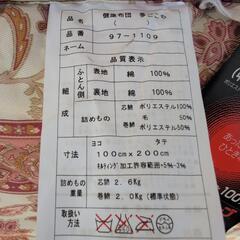 健康布団 夢ごこち
( )
97-1109
ネーム
品質表示
組成
ふとん側
表地 綿 100%
裏地 綿 100%
詰めもの
芯綿 ポリエステル100%
巻綿 毛 50%
ポリエステル50%
寸法
ヨコ タテ
100cm×200cm
キルティング加工許容範囲+5%-3%
詰めもの
の重量
芯綿 2.6Kg
巻綿 2.0Kg (標準状態)
取扱い
方法
ひとき
100